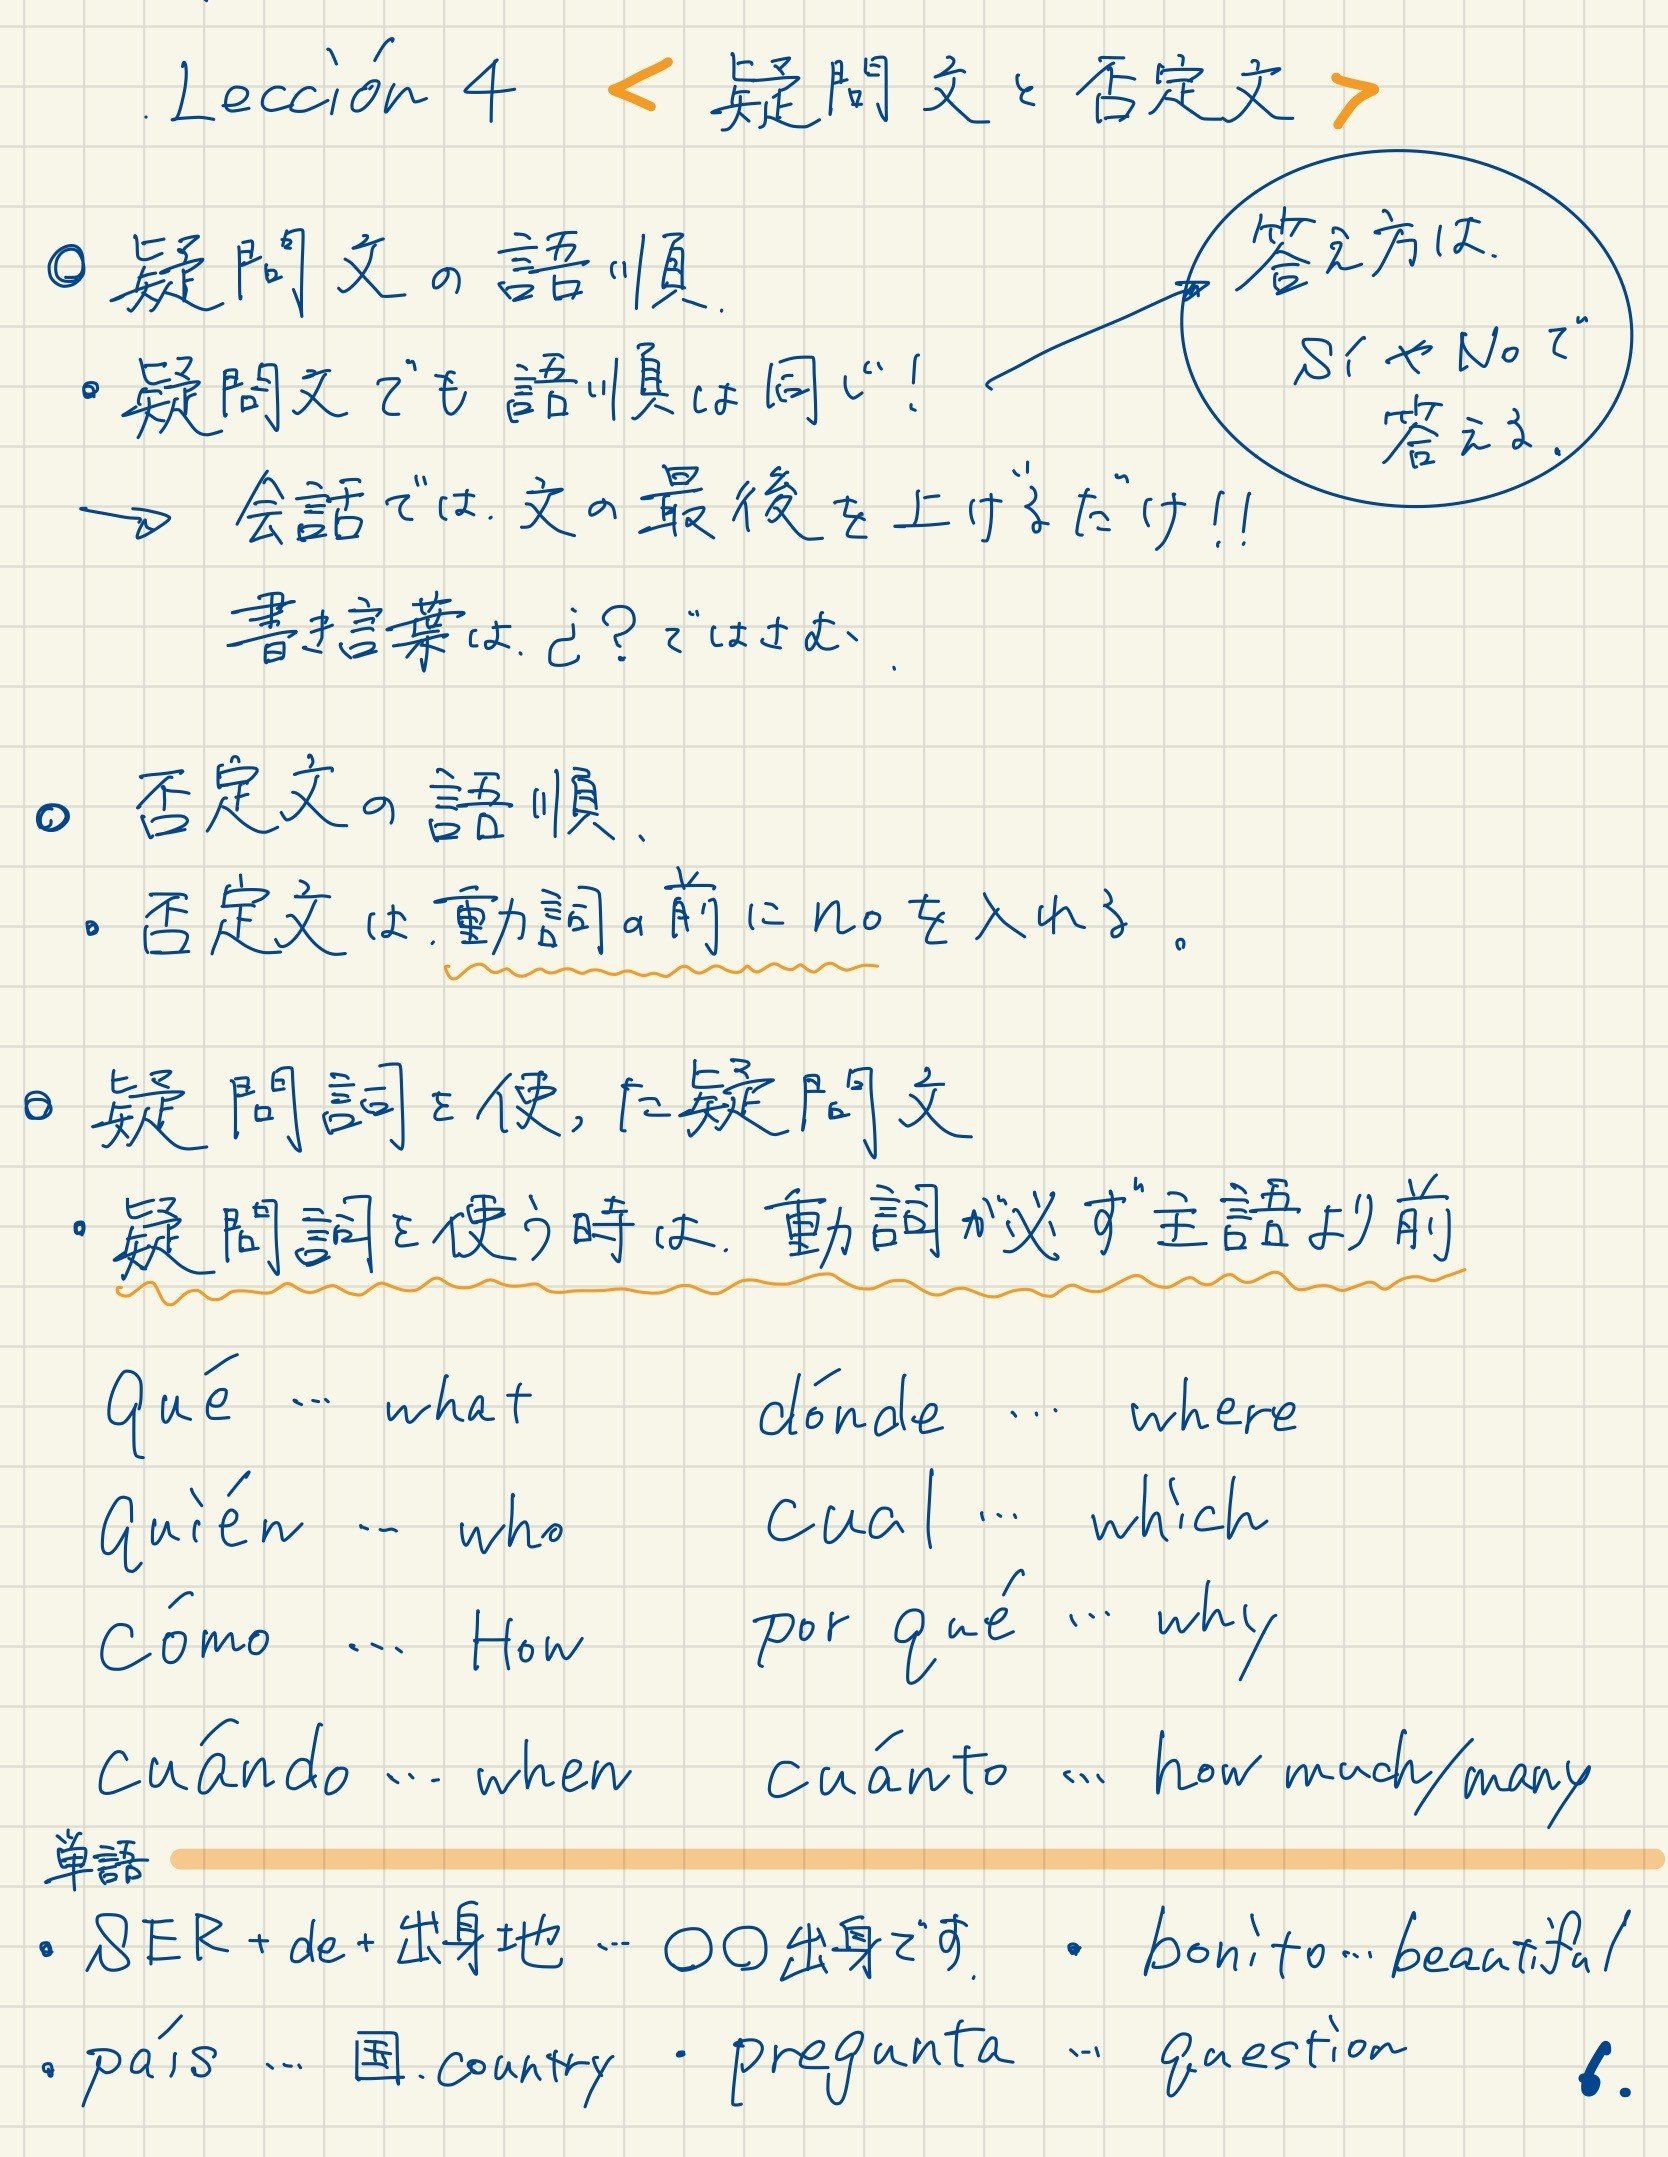 Lección 4 < 疑問文と否定文 >
◎ 疑問文の語順.
・疑問文でも語順は同じ!
答え方は.
Sí や No で
答える.
→ 会話では.文の最後を上げるだけ!!
書き言葉は.¿?ではさむ.
○ 否定文の語順.
・否定文は.動詞の前に no を入れる。
○ 疑問詞を使った疑問文
・疑問詞を使う時は.動詞が必ず主語より前
Qué … what
dónde … where
Quién … who
cual … which
Cómo … How
por qué … why
cuándo … when
cuánto … how much/many
単語
・SER + de + 出身地 … ○○出身です.
・bonito … beautiful
・país … 国.country
・pregunta … question
6.